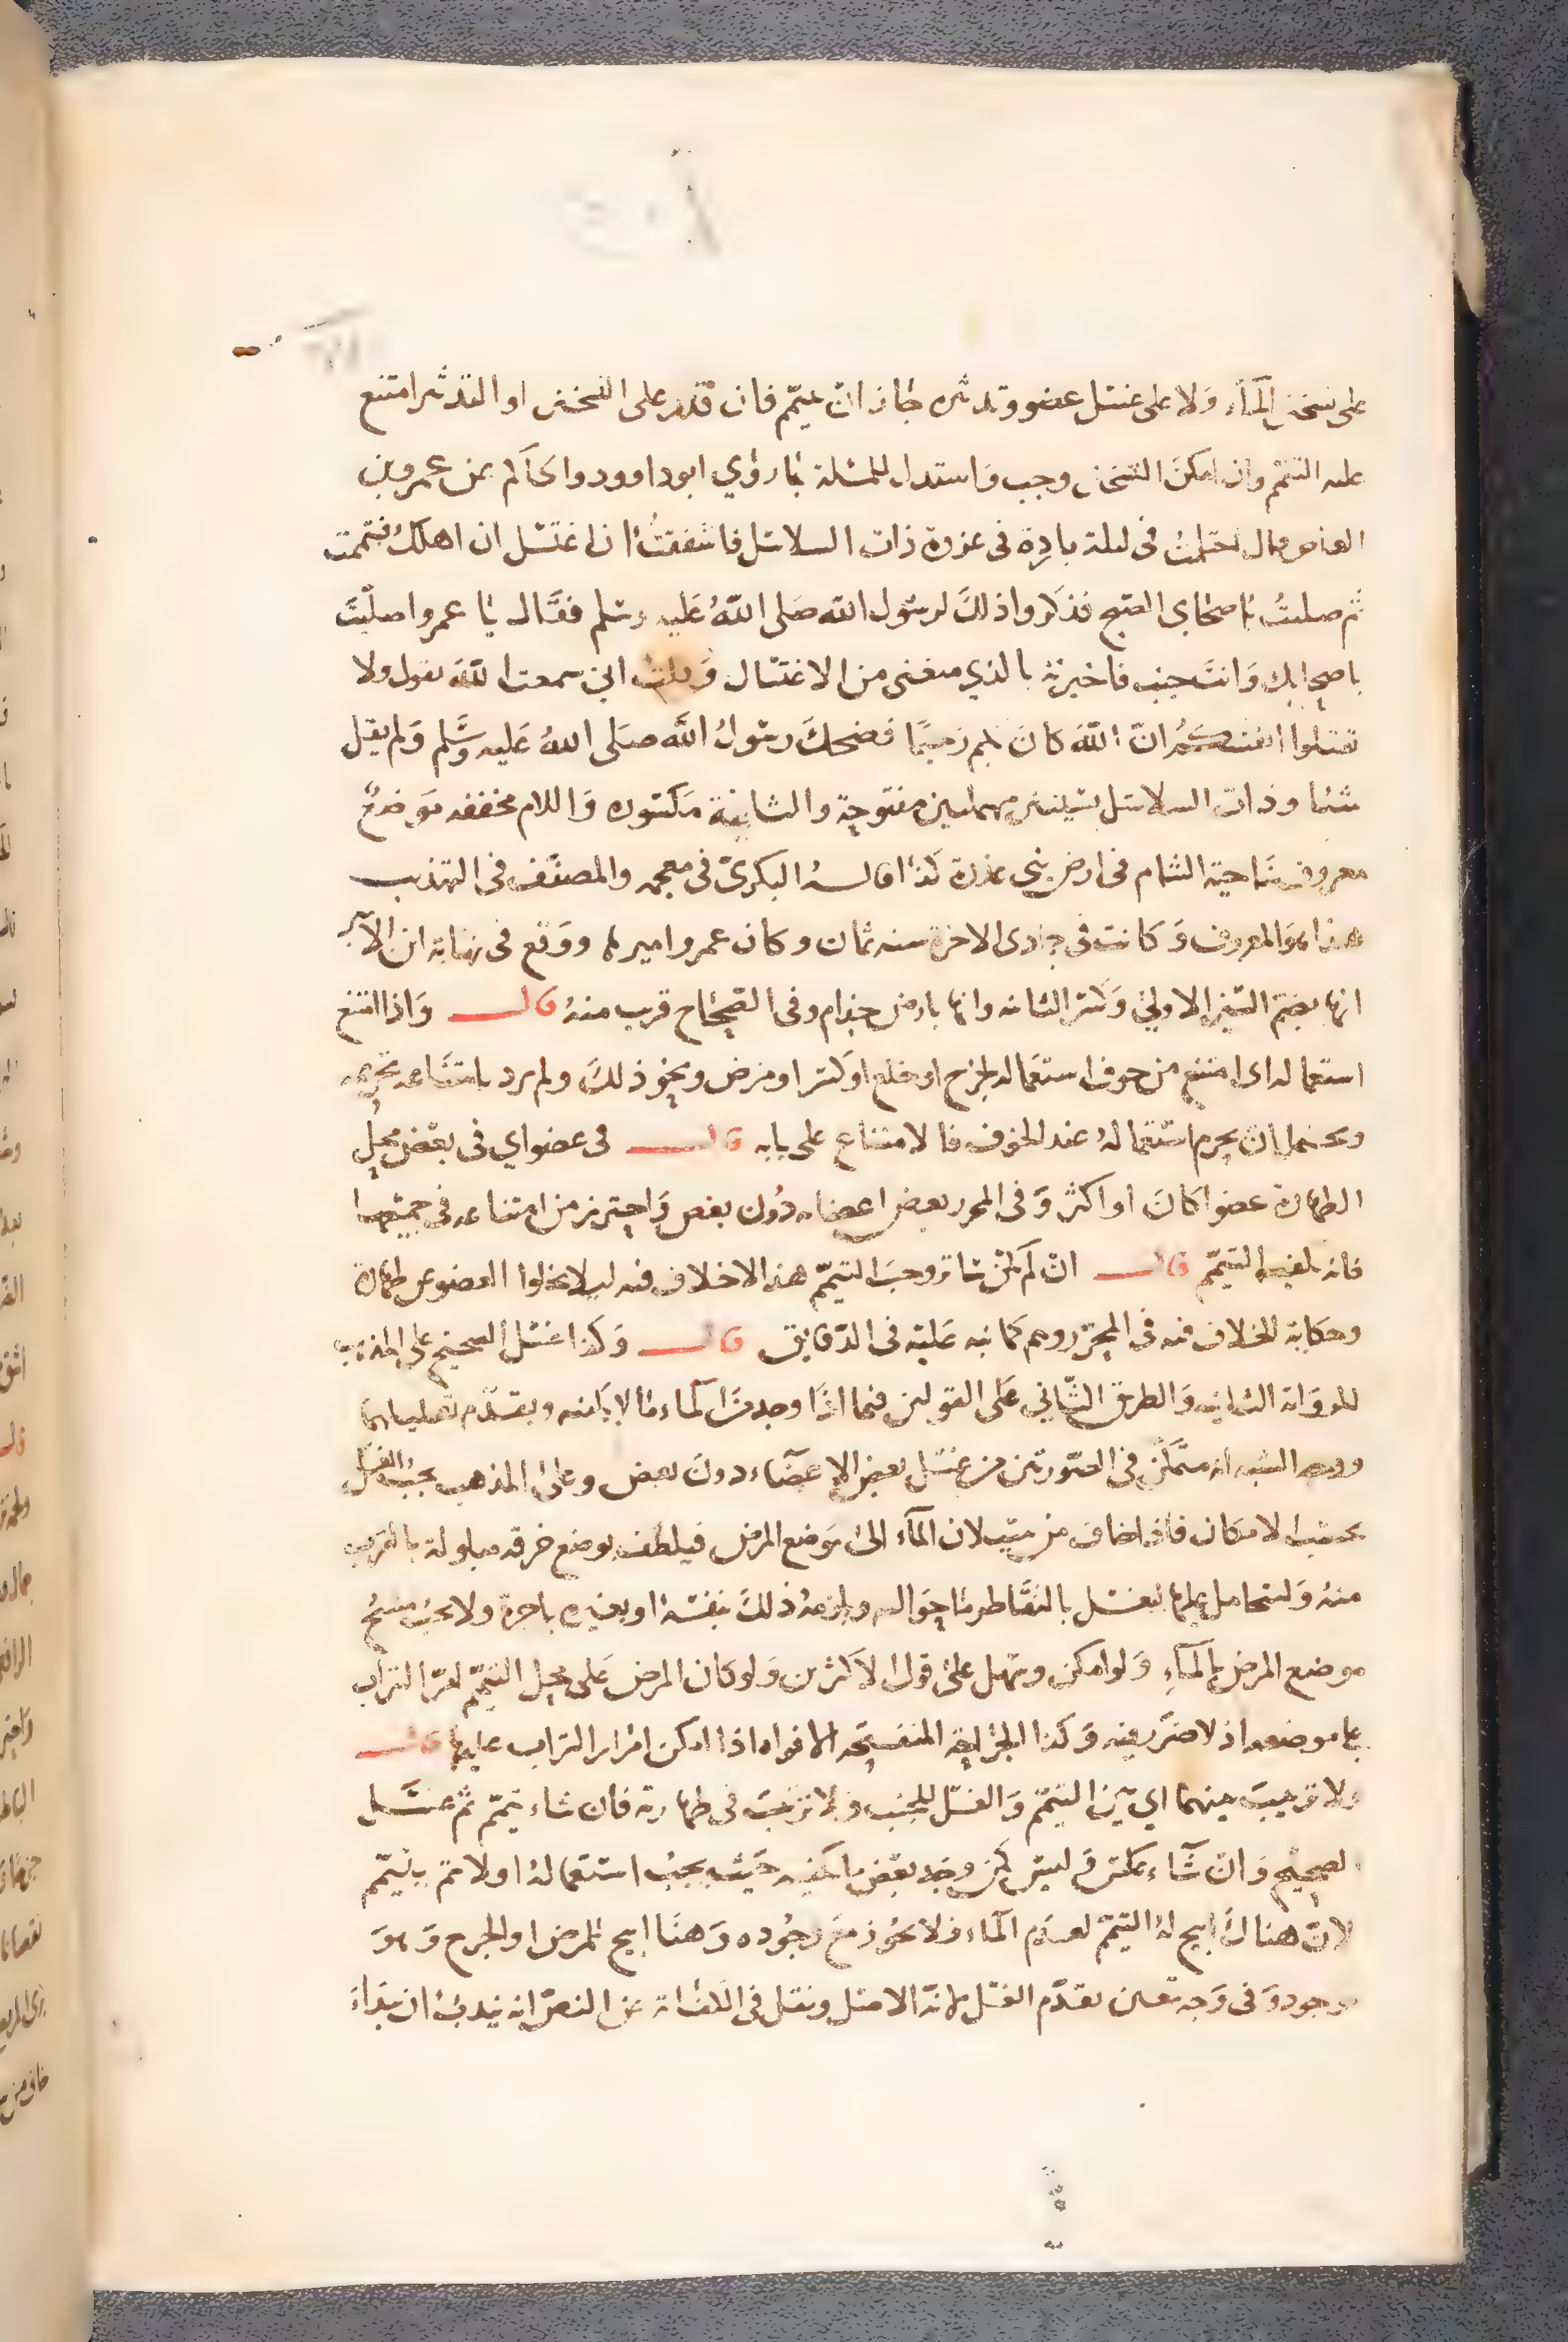 على تسخين المآء ولا على غسل عضو وتدثره جاز ان يتيمم فان قدر على التسخين او التدثر امتنع
عليه التيمم وان امكن التسخين وجب واستدل للمسئلة بما روي ابو داوود والحاكم عن عمرو بن
العاص قال احتلمت في ليلة باردة في غزوة ذات السلاسل فاشفقتُ ان اغتسل ان اهلك فتيممت
ثم صليتُ باصحابي الصبح فذكروا ذلك لرسول الله صلى اللهُ عليه وسلم فقال يا عمرو اصليتَ
باصحابك وانت جنب فاخبرته بالذي منعني من الاغتسال وقلت اني سمعت الله يقول ولا
تقتلوا انفسكم ان الله كان بكم رحيمًا فضحك رسولُ الله صلى اللهُ عليه وسلم ولم يقل
شيئا وذات السلاسل بسينين مهملتين مفتوحة والثانية مكسورة واللام مخففه موضعٌ
معروف بناحية الشام في ارض بني عذرة كذا قاله البكري في معجمه والمصنف في التهذيب
هذا هو المعروف وكانت في جمادى الاخرة سنه ثمان وكان عمرو اميرها ووقع في نهاية ابن الاثير
انها بضم السين الاولى وكسر الثانيه وانها بارض جذام وفي الصحاح قريب منهُ قال واذا امتنع
استعماله اى امتنع من خوف استعماله لجرح او خلع او كسر او مرض ونحو ذلك ولم يرد بامتناعه تحريمه
ويحتمل ان يحرم استعمالهُ عند الخوف فالامتناع على بابه قال في عضو اي في بعض محل
الطهارة عضوا كان او اكثر وفي المحرر بعض اعضاىه دون بعض واحترز من امتناعه في جميعها
فانه يكفيه التيمم قال ان لم يكن ساتر وجب التيمم هذا لا خلاف فيه ليلا يخلوا العضو عن طهارة
وحكاية الخلاف فيه في المحرر وهم كما نبه عليه في الدقايق قال وكذا غسل الصحيح على المذهب
للرواية الثانيه والطريق الثاني على القولين فيما اذا وجد من المآء ما لا يكفيه ويقدم تعليلهما
ووجه الشبه انه متمكن في الصورتين من غسل بعض الاعضاء دون بعض وعلى المذهب يجب الغسل
بحسب الامكان فاذا خاف من سيلان المآء الى موضع المرض فيلطف بوضع خرقه مبلولة بالقرب
منهُ وليتحامل عليها ليغسل بالتقاطر ما حواليه ويلزمهُ ذلك بنفسه او بغيره باجرة ولا يجب مسحُ
موضع المرض بالمآءِ ولو امكن وسهل على قول الاكثرين ولو كان المرض على محل التيمم امر التراب
على موضعه اذ لا ضرر فيه وكذا الجراحة المنفتحه الافواه اذا امكن امرار التراب عليها قال
ولا ترتيب بينهما اي بين التيمم والغسل للجنب ولا ترتيب في طهارته فان شاء تيمم ثم غسل
الصحيح وان شآء عكس وليس كمن وجد بعض ما يكفيه حيث يجب استعماله اولا ثم يتيمم
لان هناك ابيح لهُ التيمم لعدم المآء فلا يجوز مع وجوده وهنا ابيح للمرض او الجرح وهو
موجود وفي وجه تعين تقدم الغسل لانه الاصل ونقل في الكفاية عن النص انه يندب ان يبداء